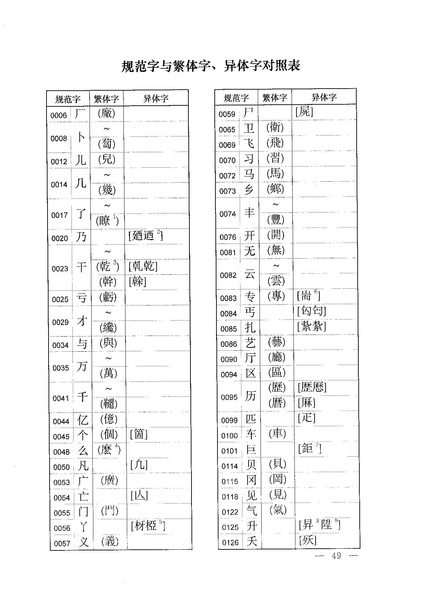 规范字与繁体字、异体字对照表
规范字 繁体字 异体字
0006 厂 (廠)
0008 卜 ~
(蔔)
0012 儿 (兒)
0014 几 ~
(幾)
0017 了 ~
(瞭1)
0020 乃 [廼迺2]
0023 干 ~
(乾3) [乹乾]
(幹) [榦]
0025 亏 (虧)
0029 才 ~
(纔)
0034 与 (與)
0035 万 ~
(萬)
0041 千 ~
(韆)
0044 亿 (億)
0045 个 (個) [箇]
0048 么 (麽4)
0050 凡 [凣]
0053 广 (廣)
0054 亡 [亾]
0055 门 (門)
0056 丫 [枒椏5]
0057 义 (義)
规范字 繁体字 异体字
0059 尸 [屍]
0065 卫 (衛)
0069 飞 (飛)
0070 习 (習)
0072 马 (馬)
0073 乡 (鄉)
0074 丰 ~
(豐)
0076 开 (開)
0081 无 (無)
0082 云 ~
(雲)
0083 专 (專) [耑6]
0084 丐 [匄匃]
0085 扎 [紥紮]
0086 艺 (藝)
0090 厅 (廳)
0094 区 (區)
0095 历 (歷) [歴厯]
(曆) [厤]
0099 匹 [疋]
0100 车 (車)
0101 巨 [鉅7]
0114 贝 (貝)
0115 冈 (岡)
0118 见 (見)
0122 气 (氣)
0125 升 [昇8陞9]
0126 夭 [殀]
— 49 —